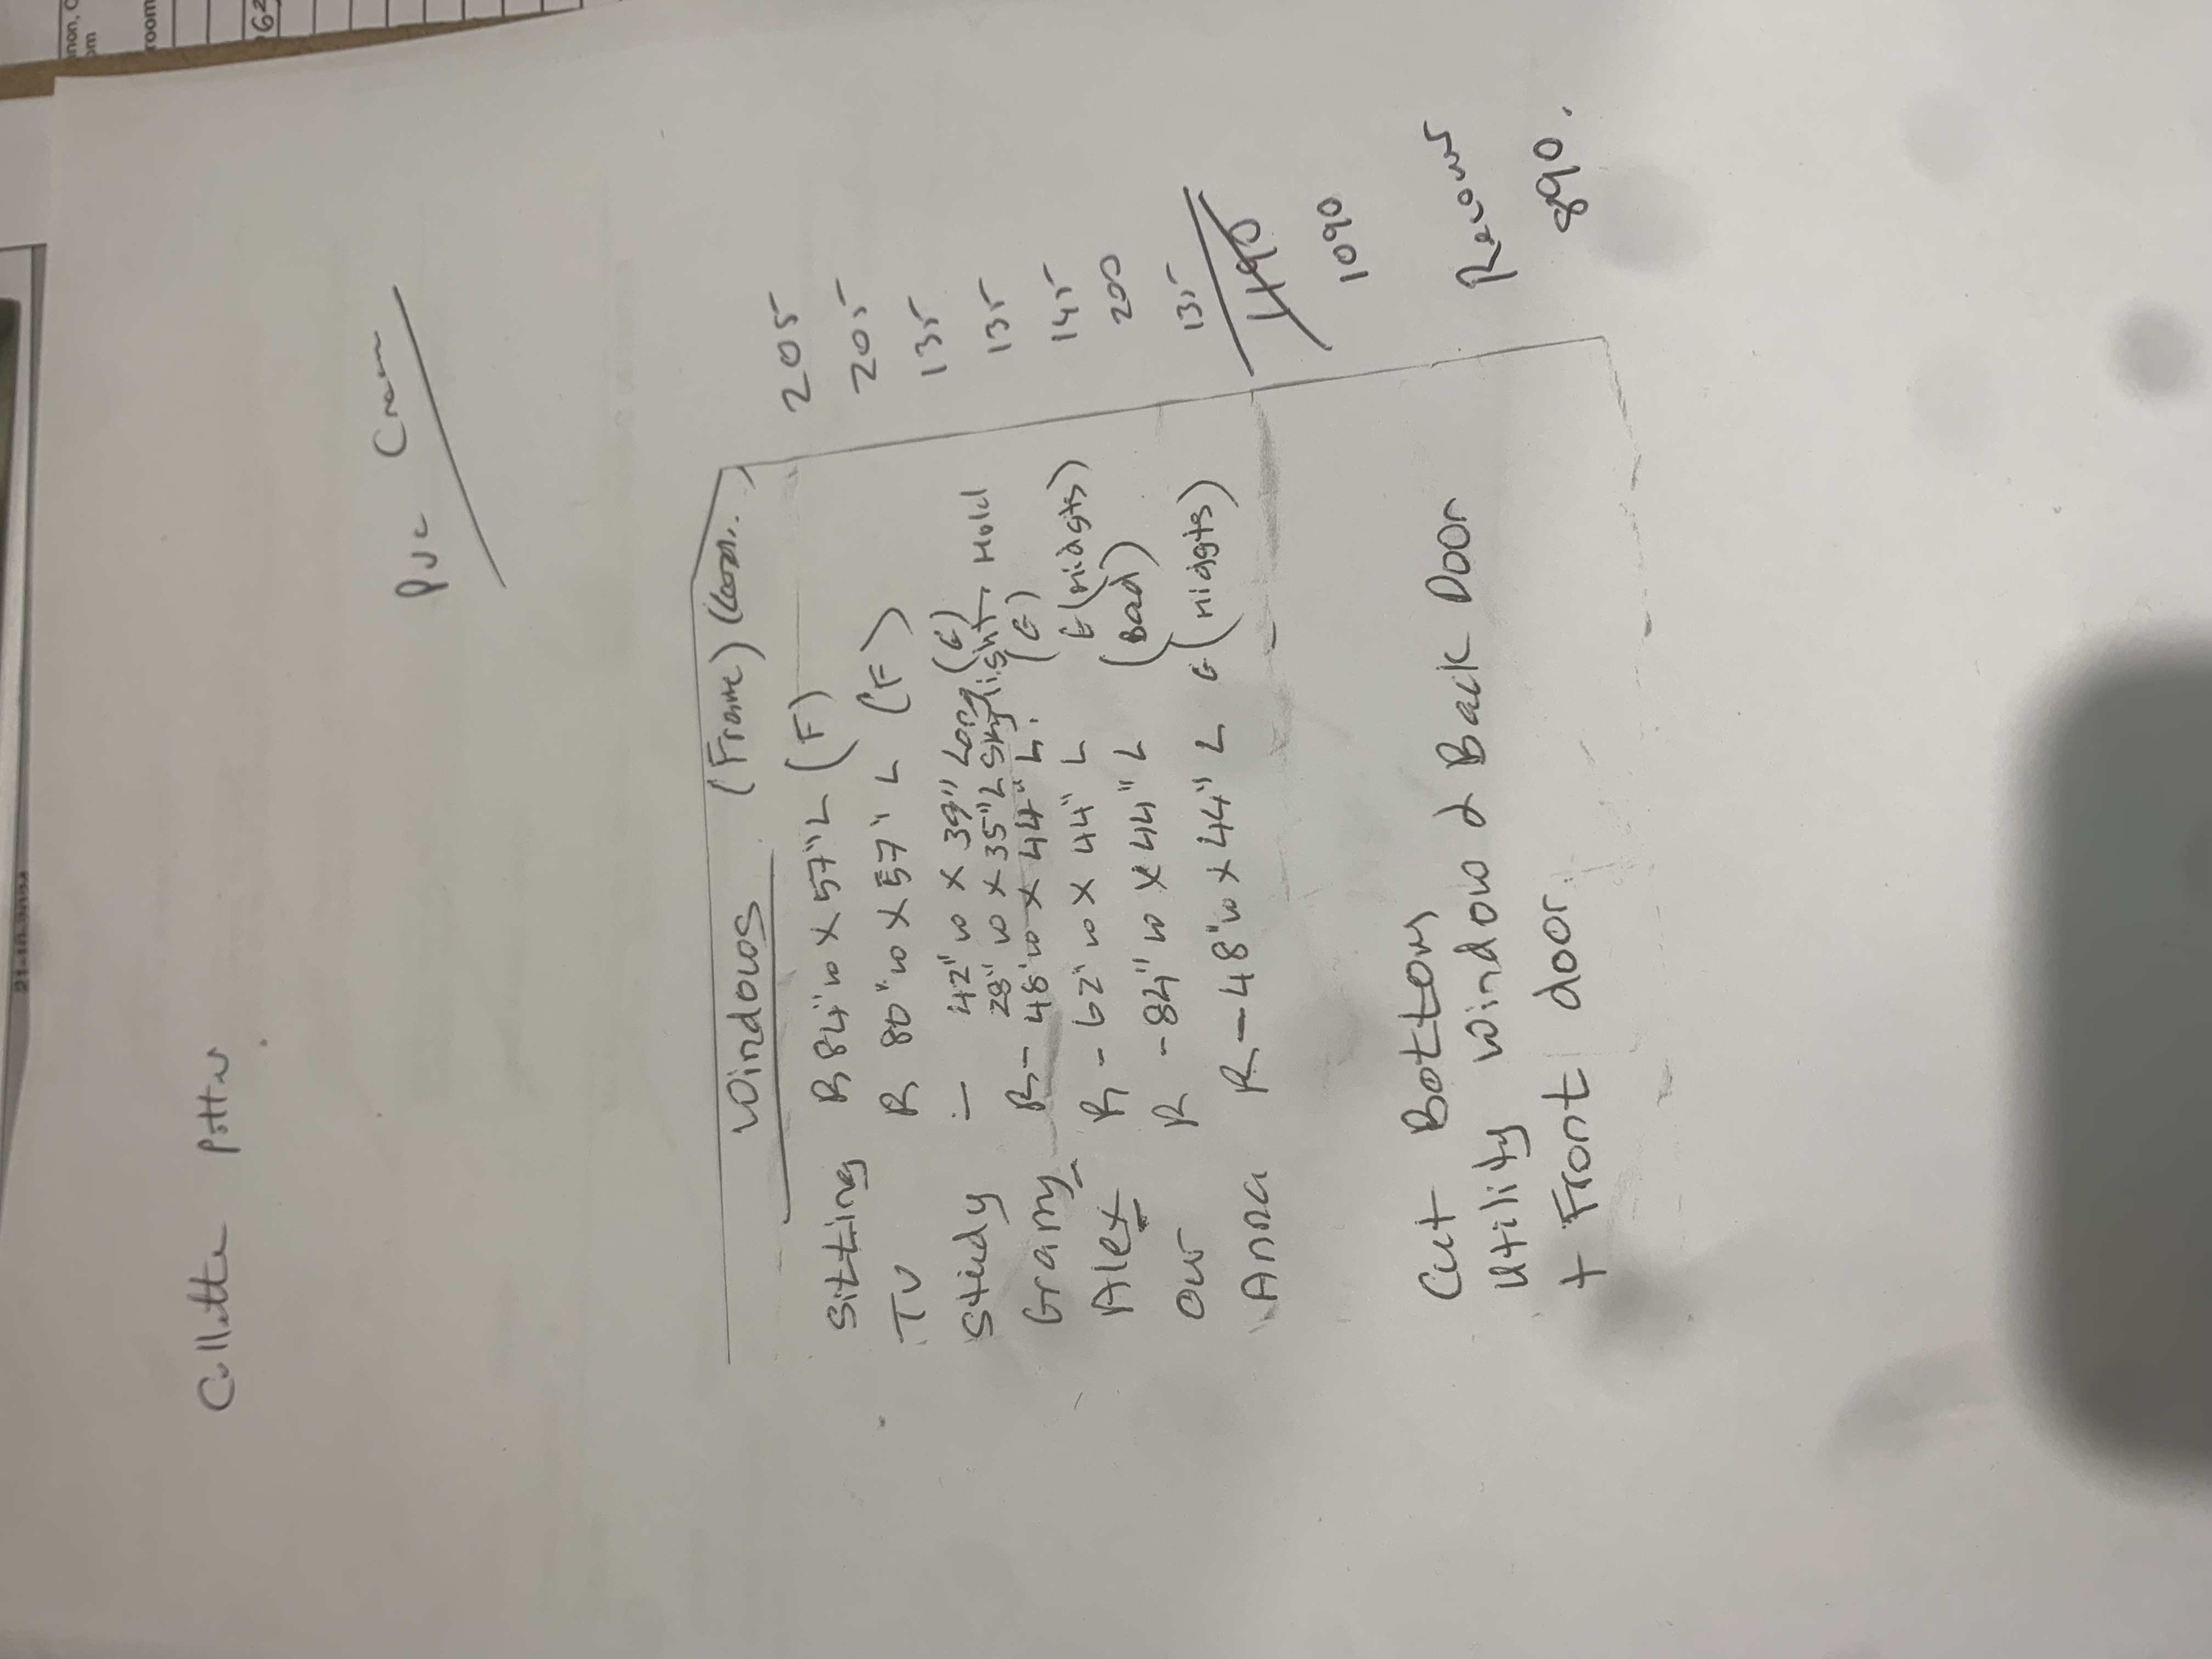 Collette Potter
PVC Cream
Windows (Frame)
Sitting R 84"w x 57"L (F) 205
TV R 80"w x 57"L (F) 205
Study - 42"w x 39" Long (E) 135
28"w x 35"L Skylight, Hold
Granny R - 48"w x 44"L. (E) 135
Alex R - 62"w x 44"L E (nidgts) 145
Our R - 84"w x 44"L (Bad) 200
Anna R - 48"w x 44"L E (nidgts) 135
1090
Cut Bottom
Utility window & Back Door
+ Front door.
Recover
890.